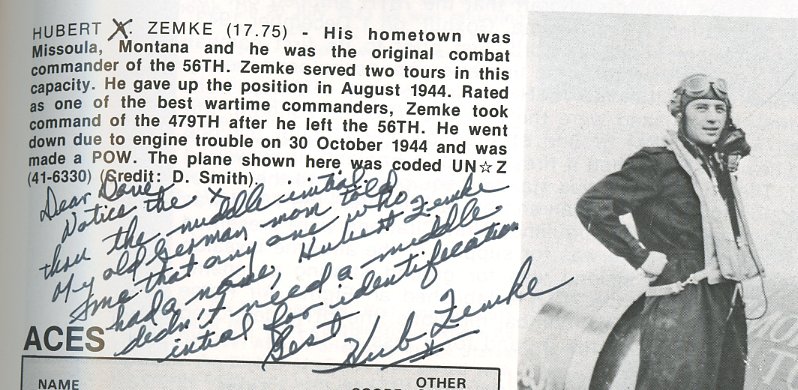 HUBERT X. ZEMKE (17.75) - His hometown was
Missoula, Montana and he was the original combat
commander of the 56TH. Zemke served two tours in this
capacity. He gave up the position in August 1944. Rated
as one of the best wartime commanders, Zemke took
command of the 479TH after he left the 56TH. He went
down due to engine trouble on 30 October 1944 and was
made a POW. The plane shown here was coded UN☆Z
(41-6330) (Credit: D. Smith).
Dear Dave,
Notice the X
thru the middle initial.
My old German mom told
me that any one who
had a name, Hubert Zemke
didn't need a middle
intial for identification
Best
Hub Zemke
ACES
NAME
OTHER